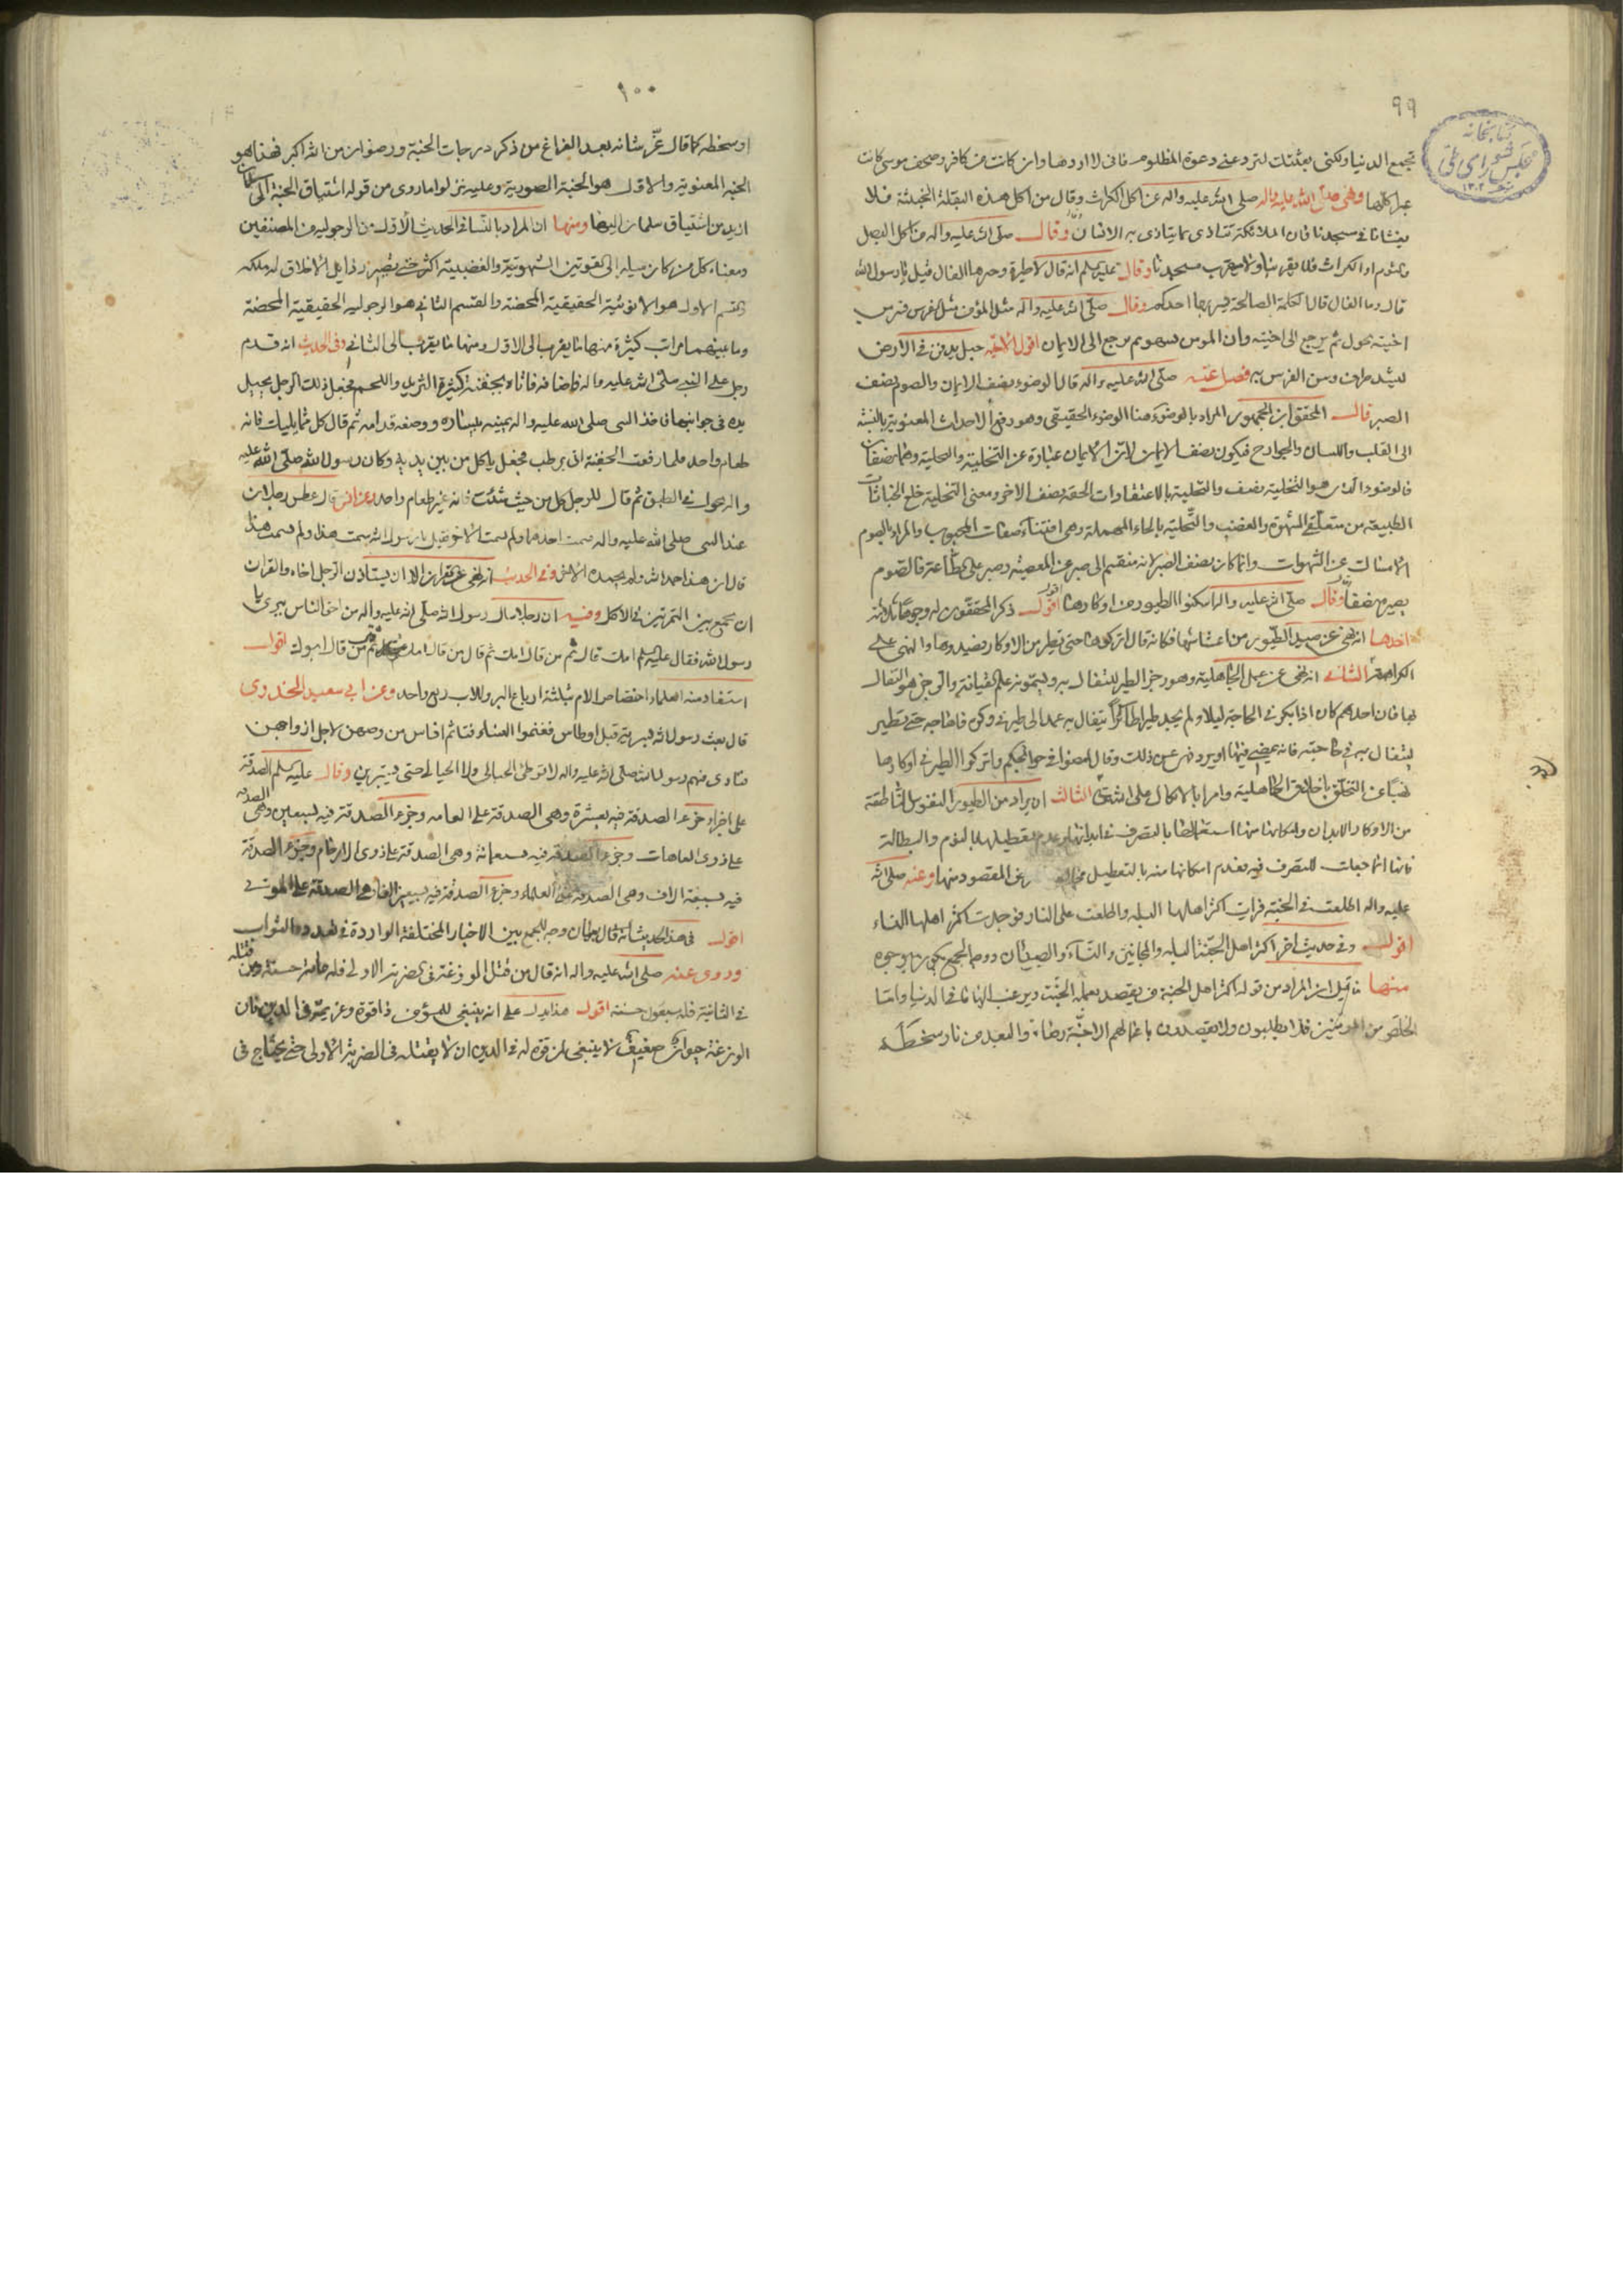 ٩٩
كتابخانه
مجلس شورای ملی
١٣٠٢
تجمع الدنيا ولكنى بعثتك لترد عنى دعوة المظلوم فانى لا اردها وان كانت من كافر وصحف موسى كانت
عبرا كلها ونهى صلى الله عليه واله صلى الله عليه واله عن اكل الكراث وقال من اكل هذه البقلة الخبيثة فلا
يغشانا فى مسجدنا فان الملائكة تتاذى بما يتاذى به الانسان وقال صلى الله عليه واله من اكل البصل
والثوم او الكراث فلا يقربنا ولا يقرب مسجدنا وقال عليه السلم انه قال لا طيرة وخيرها الفال قيل يا رسول الله
قال وما الفال قال الكلمة الصالحة يسمعها احدكم وقال صلى الله عليه واله مثل المؤمن مثل الفرس فى
اخيته يجول ثم يرجع الى اخيته وان المومن يسهو ثم يرجع الى الايمان اقول الاخيه حبل يدفن فى الارض
ليشد طرفه وسن الفرس به فصل عنه صلى الله عليه واله قال الوضوء نصف الايمان والصوم نصف
الصبر قال المحقق ابن الجمهور المراد بالوضوء هنا الوضوء الحقيقى وهو رفع الاحداث المعنوية بالنسبة
الى القلب واللسان والجوارح فيكون نصف الايمان لان الايمان عبارة عن التخلية والتحلية وهما نصفان
فالوضوء الذى هو التخلية نصف والتحلية بالاعتقادات الحقة نصف الاخر ومعنى التخلية خلع الخباثات
الطبيعة من متعلقى الشهوة والغضب والتحلية بالحاء المهملة وهى اقتناء صفات المحبوب والمراد بالصوم
الامساك عن الشهوات وانما كان نصف الصبر لانه منقسم الى صبر عن المعصية وصبر على الطاعة فالصوم
يصير نصفا وقال صلى الله عليه واله اسكنوا الطيور من اوكارها اقول ذكر المحققون له وجوها ثلاثة
احدها انه نهى عن صيد الطيور من اعشاشها فكانه قال اتركوها حتى تطير من الاوكار فصيدوها والنهى على
الكراهة الثانى انه نهى عن عمل الجاهلية وهو زجر الطير للتفال به ويسمونه علم القيافة والزجر هو التفال
بها فان احدهم كان اذا بكر فى الحاجة ليلا ولم يجد طيرا طائرا يتفال به عمد الى طير فى وكره فاهاجه حتى يطير
ليتفال به فى حاجته فانه يمضى فيها او يرد فنهى عن ذلك وقال امضوا فى حوائجكم واتركوا الطير فى اوكارها
نهيا عن التخلق باخلاق الجاهلية وامرا بالاتكال على الله تعالى الثالث ان يراد من الطيور النفوس الناطقة
من الاوكار الابدان وامكانها منها استعمالها بالتصرف فى ابدانها وعدم تعطيلها بالنوم والبطالة
فانها انما جعلت للتصرف فيه فعدم اسكانها منه بالتعطيل يخالف الغرض المقصود منها وعنه صلى الله
عليه واله اطلعت فى الجنة فرايت اكثر اهلها البله واطلعت على النار فوجدت اكثر اهلها النساء
اقول وفى حديث اخر اكثر اهل الجنة البله والمجانين والنساء والصبيان ووجه الجمع يكون بوجوه
منها ما قيل ان المراد من قوله اكثر اهل الجنة من يقصد بعمله الجنة ويرغب اليها فى الدنيا واما
الخلص من المؤمنين فلا يطلبون ولا يقصدون باعمالهم الا محبة رضاه والبعد من نار سخطه
١٠٠
او سخطه كما قال عز شانه بعد الفراغ من ذكر درجات الجنة ورضوان من الله اكبر فهذا هو
الجنة المعنوية والاول هو الجنة الصورية وعليه نزلوا ما روى من قوله اشتياق الجنة الى سلمان
ازيد من اشتياق سلمان اليها ومنها ان المراد بالنسا فى الحديث الاول من الرجولية من المصنفين
ومعناه كل من كان ميله الى القوتين الشهوية والغضبية اكثر حتى تصير رذايل الاخلاق له ملكة
والقسم الاول هو الانوثية الحقيقية المحضة والقسم الثانى هو الرجولية الحقيقية المحضة
وما بينهما مراتب كثيرة منها ما يقرب الى الاول ومنها ما يقرب الى الثانى وفى الحديث انه قدم
رجل على النبى صلى الله عليه واله فاضافه فاتاه بجفنة كثيرة الثريد واللحم فجعل ذلك الرجل يجيل
يده فى جوانبها فاخذ النبى صلى الله عليه واله يمينه بيساره ووضعه قدامه ثم قال كل مما يليك فانه
طعام واحد فلما رفعت الجفنة اتى برطب فجعل ياكل من بين يديه وكان رسول الله صلى الله عليه
واله يجول فى الطبق ثم قال للرجل كل من حيث شئت فانه غير طعام واحد وعن انس قال عطس رجلان
عند النبى صلى الله عليه واله فسمت احدهما ولم يسمت الاخر فقيل يا رسول الله سمت هذا ولم تسمت هذا
قال ان هذا حمد الله ولم يحمده الاخر وفى الحديث انه نهى عن القران الا ان يستاذن الرجل اخاه والقران
ان يجمع بين التمرتين فى الاكل وفيه ان رجلا سال رسول الله صلى الله عليه واله من احق الناس ببرى يا
رسول الله فقال عليه السلم امك قال ثم من قال امك ثم قال من قال امك ثم من قال ابوك اقول
استفاد منه العلماء اختصاص الام بثلثة ارباع البر وللاب ربع واحد وعن ابى سعيد الخدرى
قال بعث رسول الله سرية قبل اوطاس فغنموا النساء فتاثم اناس من وطئهن لاجل ازواجهن
فنادى فيهم رسول الله صلى الله عليه واله لا توطئ الحبالى ولا الحيالى حتى يستبرين وقال عليه السلم الصدقة
على اجزاء جزء الصدقة فيه بعشرة وهى الصدقة على العامه وجزء الصدقة فيه بسبعين وهى الصدقة
على ذوى العاهات وجزء الصدقة فيه بسبعمائة وهى الصدقة على ذوى الارحام وجزء الصدقة
فيه بسبعة الاف وهى الصدقة على العلماء وجزء الصدقة فيه بسبعين الفا وهى الصدقة على الموتى
اقول فى هذا الحديث بيان وجه الجمع بين الاخبار المختلفة الواردة فى تعدد الثواب
وروى عنه صلى الله عليه واله انه قال من قتل الوزغة فى الضربة الاولى فله مائة حسنة ومن قتله
فى الثانية فله سبعون حسنة اقول هذا يدل على انه ينبغى للمؤمن ذا قوة وعزيمة فى الدين فان
الوزغة حيوان ضعيف لا ينبغى لمن قوة له فى الدين ان لا يقتله فى الضربة الاولى حتى يحتاج فى